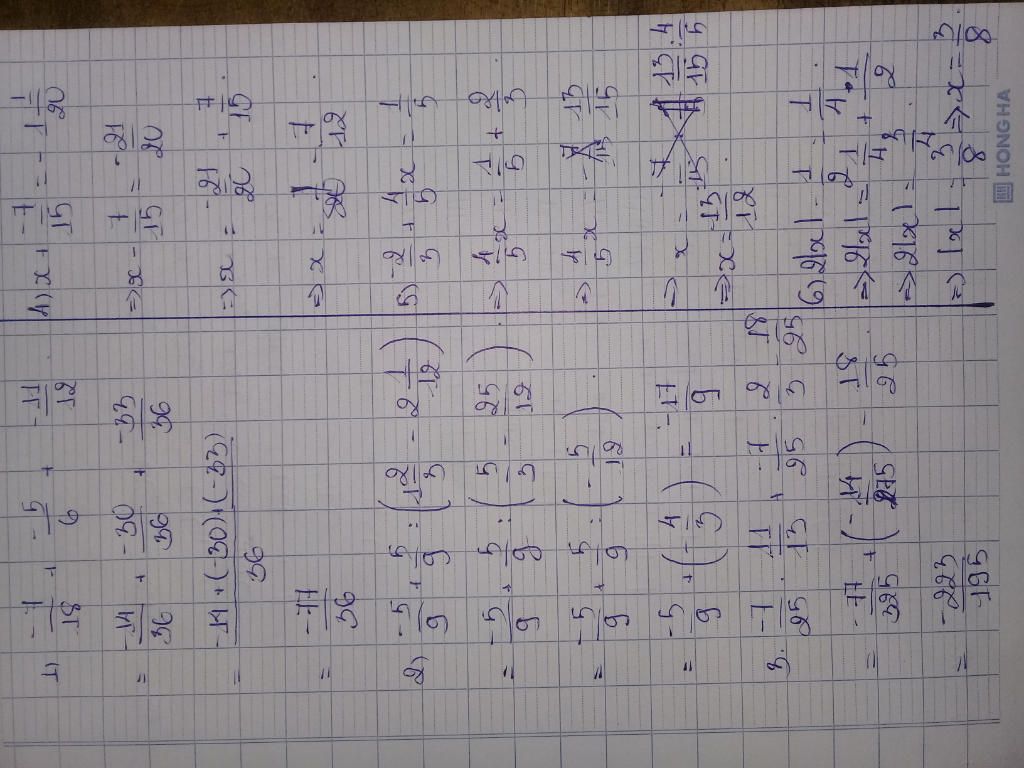 1) -7/18 + -5/6 + -11/12
= -14/36 + -30/36 + -33/36
= -14+(-30)+(-33)/36
= -77/36
2) -5/9 + 5/9 : (1 2/3 - 2 1/12)
= -5/9 + 5/9 : (5/3 - 25/12)
= -5/9 + 5/9 : (-5/12)
= -5/9 + (-4/3) = -17/9
3. -7/25 . 11/13 + -7/25 . 2/3 - 18/25
= -77/325 + (-14/75) - 18/25
= -223/195
4) x + -7/15 = -1 1/20
=> x - 7/15 = -21/20
=> x = -21/20 + 7/15
=> x = -7/12
5) -2/3 + 4/5 x = 1/5
=> 4/5 x = 1/5 + 2/3
=> 4/5 x = 13/15
=> x = 13/15 : 4/5
=> x = 13/12
6) 2|x| - 1/2 = 1/4
=> 2|x| = 1/4 + 1/2
=> 2|x| = 3/4
=> |x| = 3/8 => x = 3/8
HONG HA